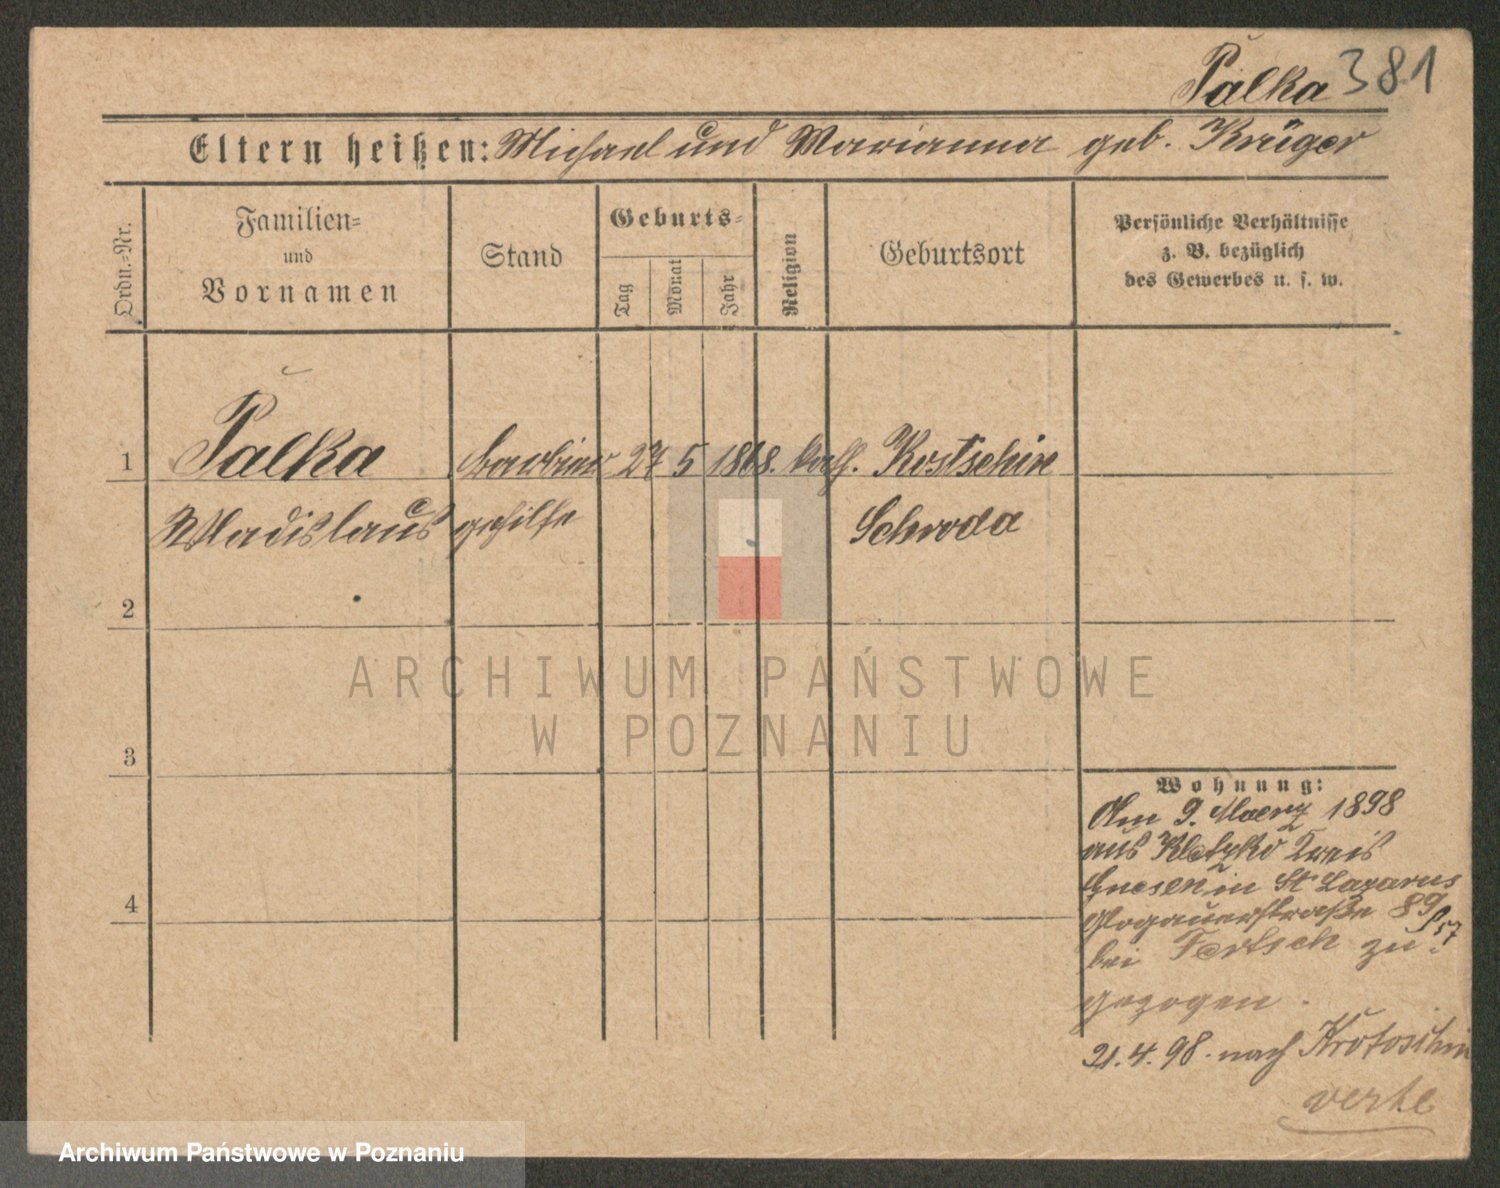 Palka 381
Eltern heißen: Michael und Marianna geb. Krüger
Ordn.-Nr.
Familien-
und
Vornamen
Stand
Geburts-
Tag
Monat
Jahr
Religion
Geburtsort
Persönliche Verhältnisse
z. B. bezüglich
des Gewerbes u. s. w.
1 Palka Barbier 27 5 1868. kath. Kostschin
Wladislaus gehilfe Schroda
2
3
4
ARCHIWUM PAŃSTWOWE
W POZNANIU
Wohnung:
Am 9. Maerz 1898
aus Kletzko Kreis
Gnesen in St Lazarus
Glogauerstraße 89
bei Fertsch zu-
gezogen.
21.4.98. nach Krotoschin
verte
Archiwum Państwowe w Poznaniu